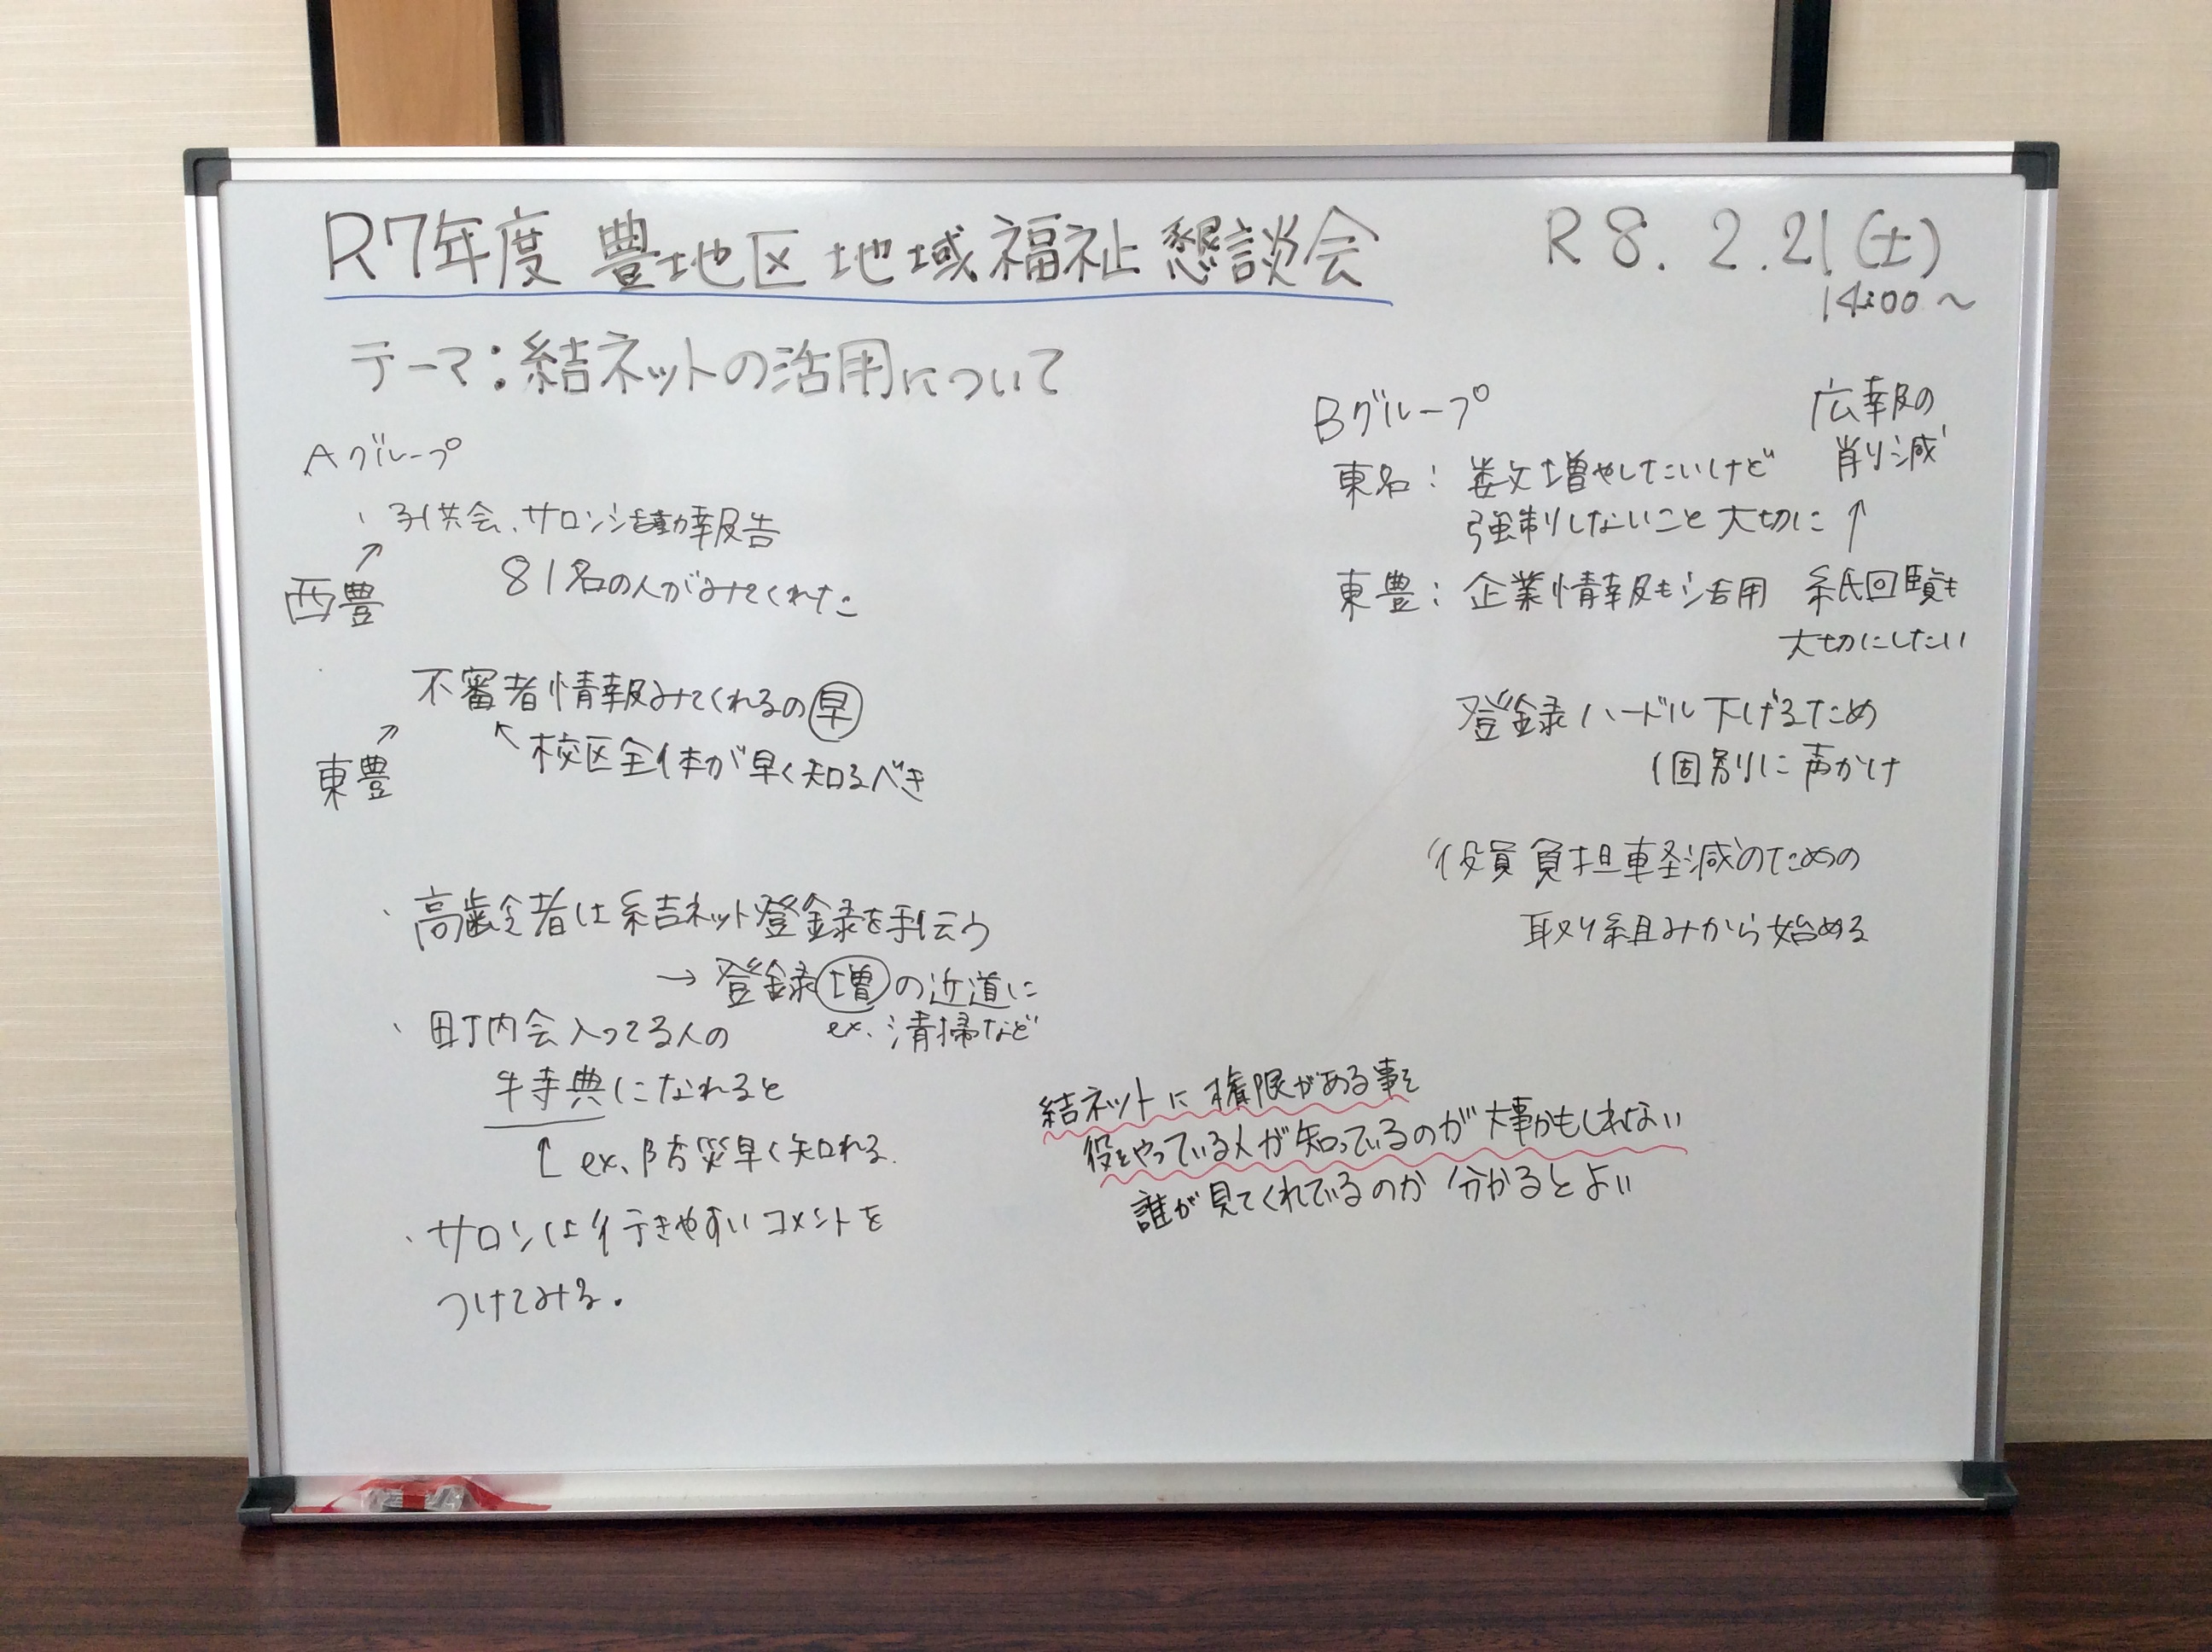 R7年度 豊地区 地域福祉懇談会
R8. 2.21(土)
14:00～
テーマ：結ネットの活用について
Aグループ
・子供会、サロン活動報告
81名の人がみてくれた
西豊
不審者情報みてくれるの早
校区全体が早く知るべき
東豊
・高齢者は結ネット登録を手伝う
→登録増の近道に
・町内会入ってる人の
ex. 清掃など
特典になれると
ex. 防災早く知れる.
・サロンは行きやすいコメントを
つけてみる.
Bグループ
広報の
削減
東名：数増やしたいけど
強制しないこと大切に
東豊：企業情報も活用
紙回覧も
大切にしたい
登録ハードル下げるため
個別に声かけ
役員負担軽減のための
取り組みから始める
結ネットに権限がある事を
役をやっている人が知っているのが大事かもしれない
誰が見てくれているのか分かるとよい